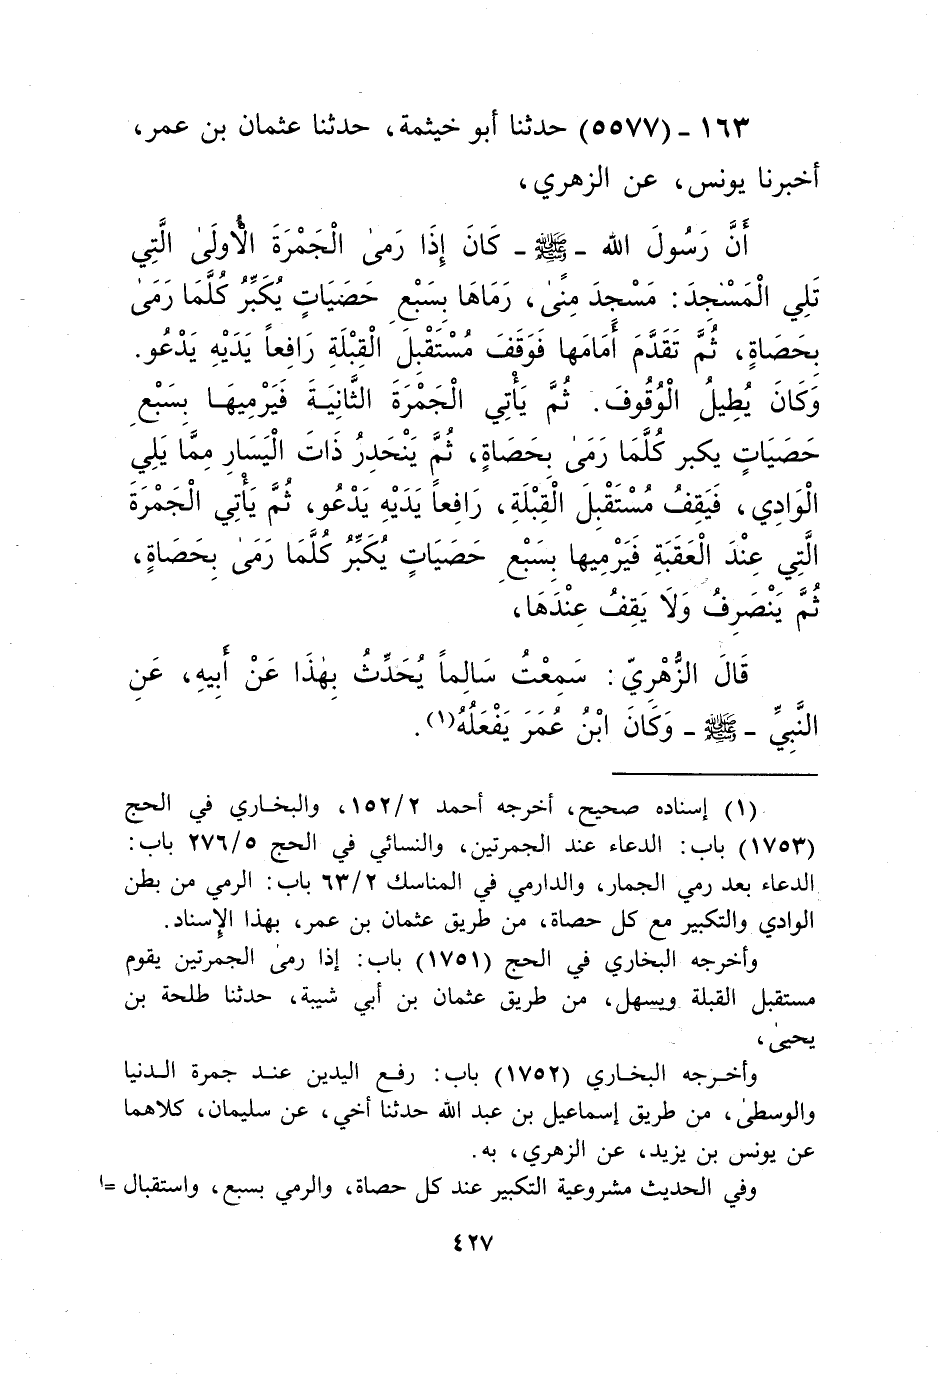 ١٦٣ ـ (٥٥٧٧) حدثنا أبو خيثمة، حدثنا عثمان بن عمر،
أخبرنا يونس، عن الزهري،
أَنَّ رَسُولَ الله ـ ﷺ ـ كَانَ إِذَا رَمىٰ الْجَمْرَةَ الْأُولَىٰ الَّتِي
تَلِي الْمَسْجِدَ: مَسْجِدَ مِنًىٰ، رَمَاهَا بِسَبْعِ حَصَيَاتٍ يُكَبِّرُ كُلَّمَا رَمَىٰ
بِحَصَاةٍ، ثُمَّ تَقَدَّمَ أَمَامَها فَوَقَفَ مُسْتَقْبِلَ الْقِبْلَةِ رَافِعاً يَدَيْهِ يَدْعُو.
وَكَانَ يُطِيلُ الْوُقُوفَ. ثُمَّ يَأْتِي الْجَمْرَةَ الثَّانِيَةَ فَيَرْمِيهَا بِسَبْعِ
حَصَيَاتٍ يكبر كُلَّمَا رَمَىٰ بِحَصَاةٍ، ثُمَّ يَنْحَدِرُ ذَاتَ الْيَسَارِ مِمَّا يَلِي
الْوَادِي، فَيَقِفُ مُسْتَقْبِلَ الْقِبْلَةِ، رَافِعاً يَدَيْهِ يَدْعُو، ثُمَّ يَأْتِي الْجَمْرَةَ
الَّتِي عِنْدَ الْعَقَبَةِ فَيَرْمِيها بِسَبْعِ حَصَيَاتٍ يُكَبِّرُ كُلَّمَا رَمَىٰ بِحَصَاةٍ،
ثُمَّ يَنْصَرِفُ وَلَا يَقِفُ عِنْدَهَا،
قَالَ الزُّهْرِيّ: سَمِعْتُ سَالِماً يُحَدِّثُ بِهٰذَا عَنْ أَبِيهِ، عَنِ
النَّبِيِّ ـ ﷺ ـ وَكَانَ ابْنُ عُمَرَ يَفْعَلُهُ(١).
(١) إسناده صحيح، أخرجه أحمد ١٥٢/٢، والبخاري في الحج
(١٧٥٣) باب: الدعاء عند الجمرتين، والنسائي في الحج ٢٧٦/٥ باب:
الدعاء بعد رمي الجمار، والدارمي في المناسك ٦٣/٢ باب: الرمي من بطن
الوادي والتكبير مع كل حصاة، من طريق عثمان بن عمر، بهذا الإسناد.
وأخرجه البخاري في الحج (١٧٥١) باب: إذا رمىٰ الجمرتين يقوم
مستقبل القبلة ويسهل، من طريق عثمان بن أبي شيبة، حدثنا طلحة بن
يحيىٰ،
وأخرجه البخاري (١٧٥٢) باب: رفع اليدين عند جمرة الدنيا
والوسطىٰ، من طريق إسماعيل بن عبد الله حدثنا أخي، عن سليمان، كلاهما
عن يونس بن يزيد، عن الزهري، به.
وفي الحديث مشروعية التكبير عند كل حصاة، والرمي بسبع، واستقبال =
٤٢٧